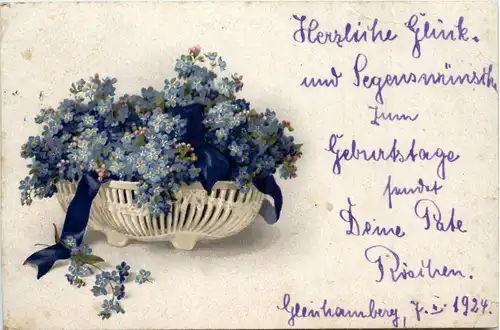 Herzliche Glück-
und Segenswünsche
zum
Geburtstage
sendet
Deine Pate
Röschen.
Gleinhamberg, 7. I. 1924.